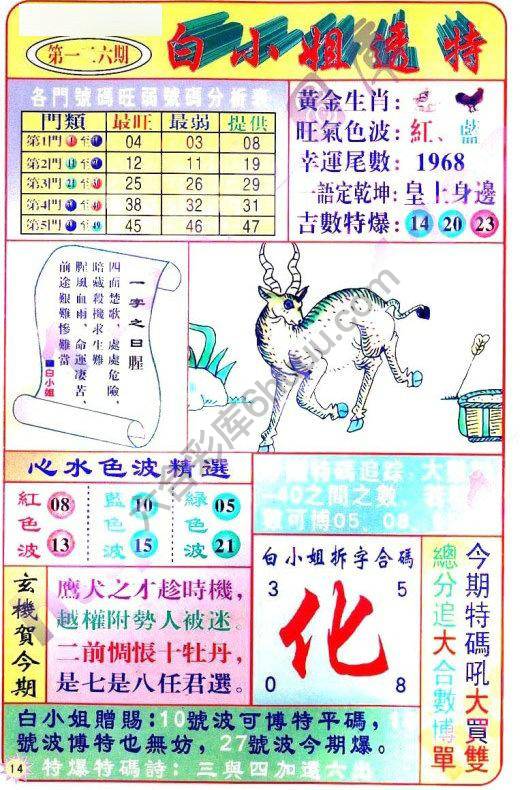 第一二六期
白小姐透特
各門號碼旺弱號碼分析表
門類 最旺 最弱 提供
第1門 1 至 04 03 08
第2門 至 12 11 19
第3門 至 25 26 29
第4門 至 38 32 31
第5門 至 49 45 46 47
黃金生肖:
旺氣色波:紅、藍
幸運尾數:1968
一語定乾坤:皇上身邊
吉數特爆:14 20 23
一字之曰腥
四面楚歌,處處危險,
暗藏殺機求生難
腥風血雨,命運淒苦、
前途艱難慘難當
白小姐
心水色波精選
紅色波 08 13
藍色波 10 15
綠色波 05 21
特碼追踪:大
-40之間之數,
可博05、08、
玄機賀今期
鷹犬之才趁時機,
越權附勢人被迷。
二前惆悵十牡丹,
是七是八任君選。
白小姐拆字合碼
3 5
化
0 8
今期特碼吼大買雙
總分追大合數博單
白小姐贈賜:10號波可博特平碼,
號波博特也無妨,27號波今期爆。
14
特爆特碼詩:三與四加還六出
六合彩库6htuku.com